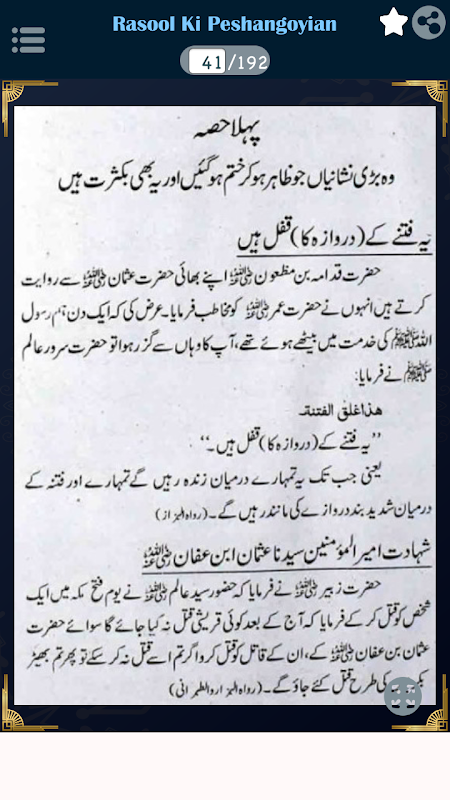 Rasool Ki Peshangoyian
41/192
پہلا حصہ
وہ بڑی نشانیاں جو ظاہر ہو کر ختم ہو گئیں اور یہ بھی بکثرت ہیں
یہ فتنے کے (دروازہ کا) قفل ہیں
حضرت قدامہ بن مظعون رضی اللہ عنہ اپنے بھائی حضرت عثمان رضی اللہ عنہ سے روایت
کرتے ہیں انہوں نے حضرت عمر رضی اللہ عنہ کو مخاطب فرمایا۔ عرض کی کہ ایک دن ہم رسول
اللہ ﷺ کی خدمت میں بیٹھے ہوئے تھے، آپ کا وہاں سے گزر ہوا تو حضرت سرور عالم
ﷺ نے فرمایا:
هذا غلق الفتنة۔
’’یہ فتنے کے (دروازہ کا) قفل ہیں۔‘‘
یعنی جب تک یہ تمہارے درمیان زندہ رہیں گے تمہارے اور فتنہ کے
درمیان شدید بند دروازے کی مانند رہیں گے۔ (رواہ البزاز)
شہادت امیر المؤمنین سیدنا عثمان ابن عفان رضی اللہ عنہ
حضرت زبیر رضی اللہ عنہ نے فرمایا کہ حضور سید عالم ﷺ نے یوم فتح مکہ میں ایک
شخص کو قتل کر کے فرمایا کہ آج کے بعد کوئی قریشی قتل نہ کیا جائے گا سوائے حضرت
عثمان بن عفان رضی اللہ عنہ کے، ان کے قاتل کو قتل کرو اگر تم اسے قتل نہ کر سکے تو پھر تم بھیڑ
کی طرح قتل کئے جاؤ گے۔ (رواہ البزار والطبرانی)